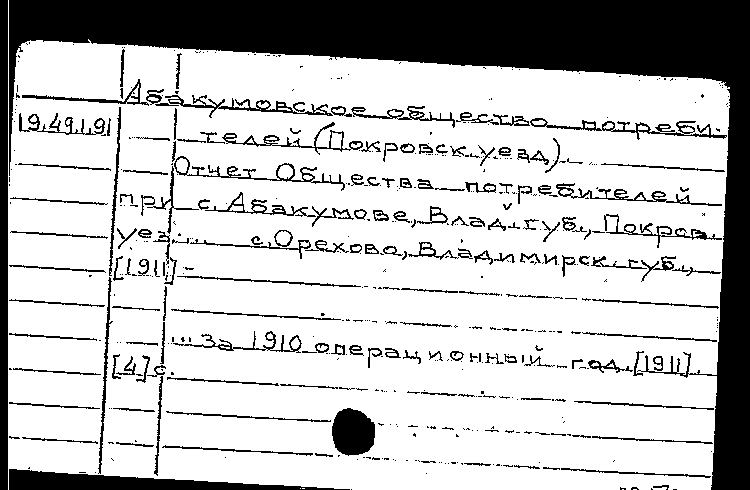 Абакумовское общество потреби-
19.49.1.91 телей (Покровск. уезд).
Отчет Общества потребителей
при с. Абакумове, Влад. губ., Покров.
уез... с. Орехово, Владимирск. губ.,
[1911] -
... за 1910 операционный год. [1911].
[4] с.